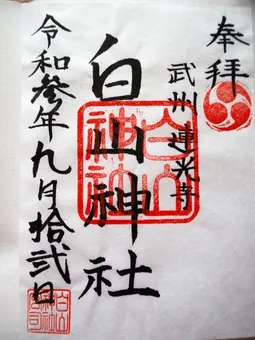 奉拝
武州 連光寺
白山神社
令和参年九月拾弐日
白山神社